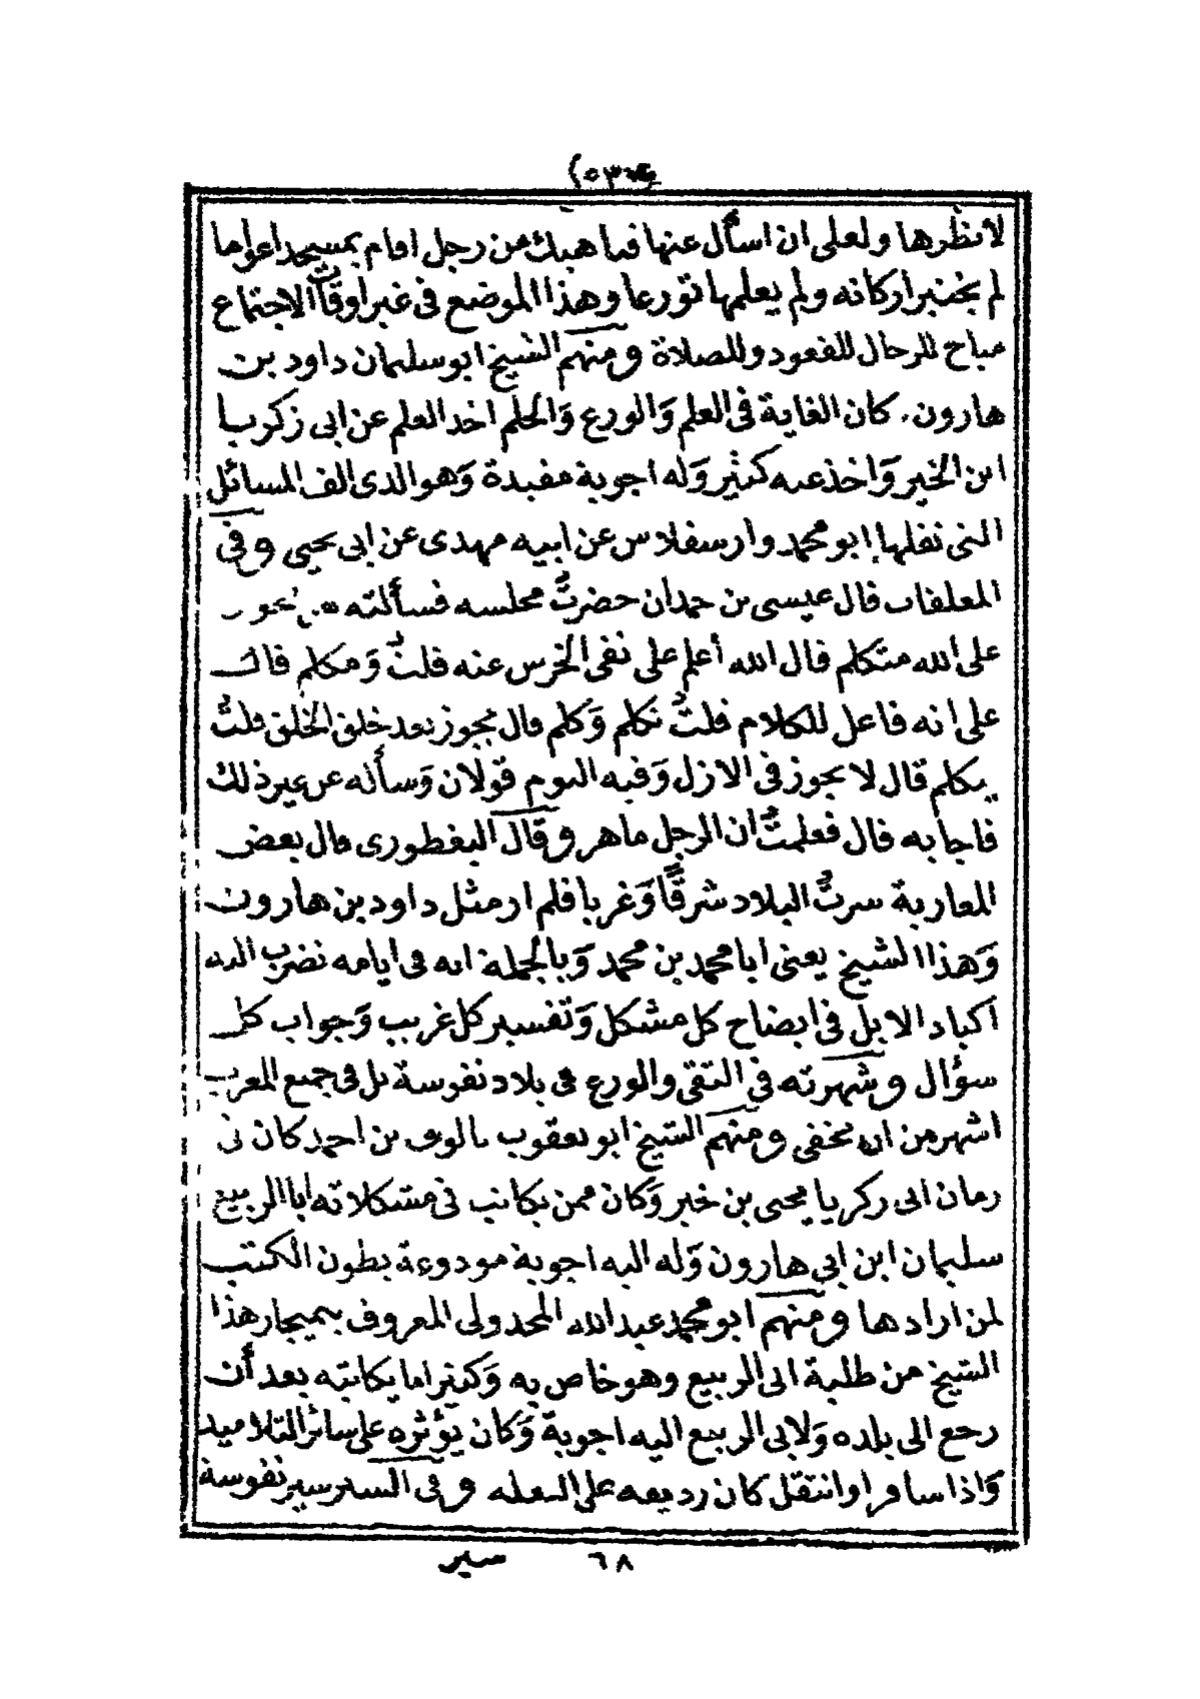 لانظرها ولعلى ان اسأل عنها فما هبك من رجل اقام بمسجد اعواما
لم يختبر اركانه ولم يعلمها تورعا وهذا الموضع فى غير اوقات الاجتماع
مباح للرجال للقعود وللصلاة ومنهم الشيخ ابو سليمان داود بن
هارون. كان الغاية فى العلم وَالورع وَالحلم اخذ العلم عن ابى زكريا
ابن الخير وَاخذ عنه كثير وَله اجوبة مفيدة وَهو الذى الف المسائل
التى نقلها ابو محمد وارسفلاس عن ابيه مهدى عن ابى يحيى وفى
المعلقات قال عيسى بن حمدان حضرتُ مجلسه فسألته
على الله متكلم قال الله أعلم على نفى الخرس عنه قلتُ وَمكلم قال
على انه فاعل للكلام قلتُ تكلم وَكلم قال يجوز بعد خلق الخلق قلتُ
يكلم قال لا يجوز فى الازل وَفيه اليوم قولان وَسأله عن غير ذلك
فاجابه قال فعلمتُ ان الرجل ماهر وقال البغطورى قال بعض
المغاربة سرتُ البلاد شرقًا وَغربا فلم ار مثل داود بن هارون
وَهذا الشيخ يعنى ابا محمد بن محمد وَبالجملة انه فى ايامه تضرب اليه
اكباد الابل فى ايضاح كل مشكل وَتفسير كل غريب وَجواب كل
سؤال وشهرته فى التقى والورع فى بلاد نفوسة بل فى جميع المغرب
اشهر من ان يخفى ومنهم الشيخ ابو يعقوب بن احمد كان فى
زمان ابى زكريا يحيى بن خير وَكان ممن يكاتب فى مشكلاته ابا الربيع
سليمان ابن ابى هارون وَله اليه اجوبة مودوعة بطون الكتب
لمن ارادها ومنهم ابو محمد عبد الله المجدولى المعروف بميجار هذا
الشيخ من طلبة ابى الربيع وهو خاص به وَكثيرا ما يكاتبه بعد أن
رجع الى بلده وَلابى الربيع اليه اجوبة وَكان يؤثره على سائر التلاميذ
وَاذا سافر او انتقل كان رديفه على البغلة وفى السير سير نفوسة
٦٨ سير